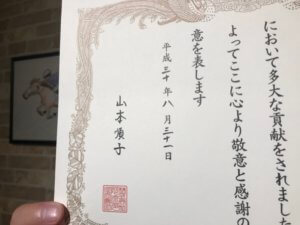 において多大な貢献をされました
よってここに心より敬意と感謝の
意を表します
平成三十年八月三十一日
山本